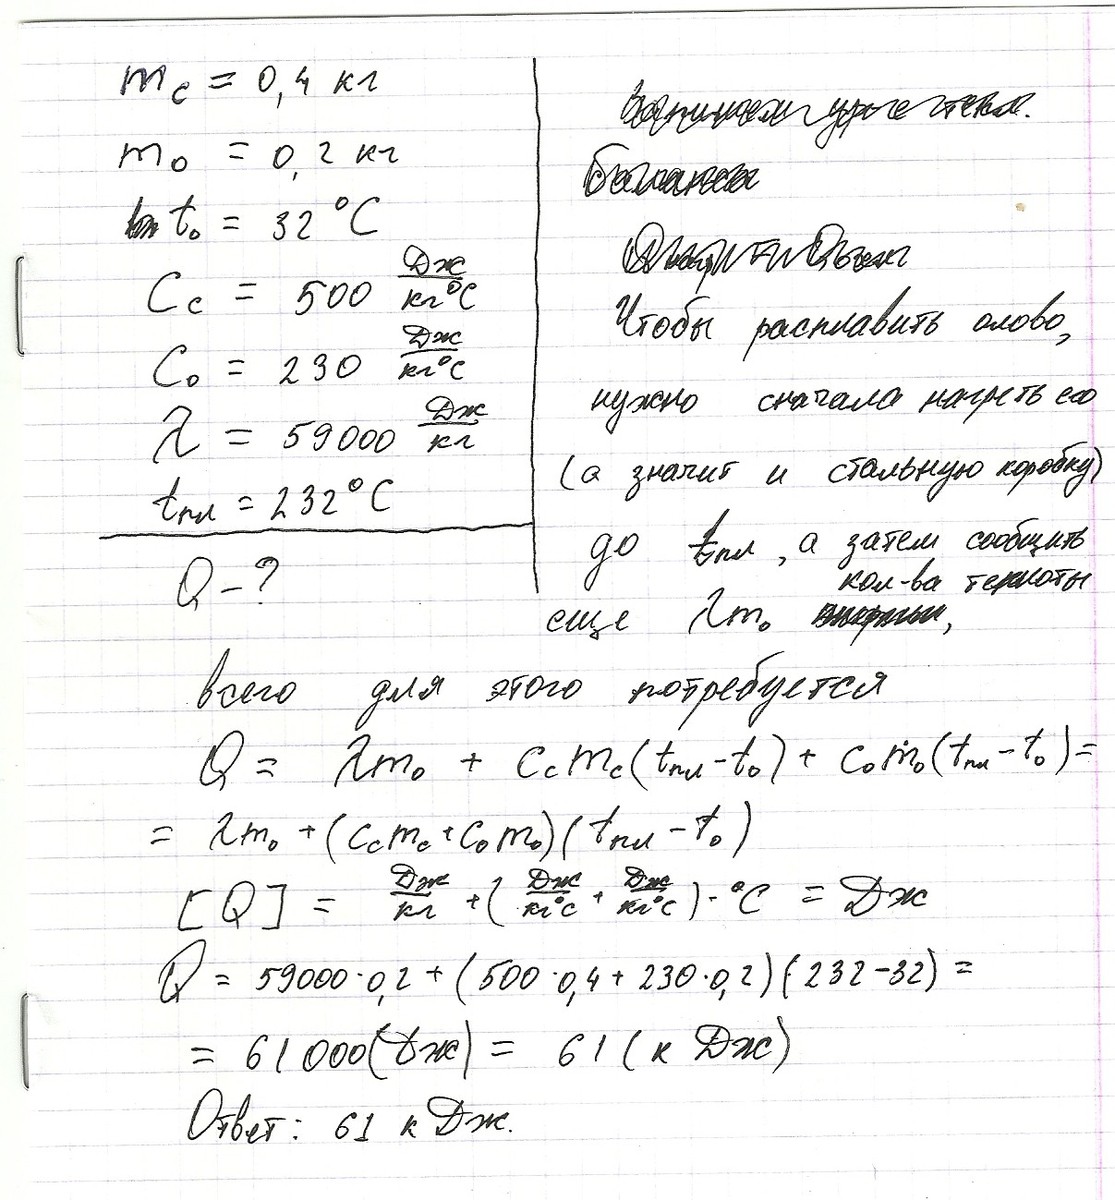 m_c = 0,4 кг
m_o = 0,2 кг
t_o = 32 °C
C_c = 500 Дж/кг°C
C_o = 230 Дж/кг°C
λ = 59000 Дж/кг
t_пл = 232°C
Q - ?
Чтобы расплавить олово,
нужно сначала нагреть его
(а значит и стальную коробку)
до t_пл, а затем сообщить
кол-ва теплоты
еще λm_o ,
всего для этого потребуется
Q = λm_o + C_c m_c (t_пл - t_o) + C_o m_o (t_пл - t_o) =
= λm_o + (C_c m_c + C_o m_o)(t_пл - t_o)
[Q] = Дж/кг + (Дж/кг°C + Дж/кг°C) · °C = Дж
Q = 59000·0,2 + (500·0,4 + 230·0,2)(232-32) =
= 61 000(Дж) = 61 (кДж)
Ответ: 61 кДж.